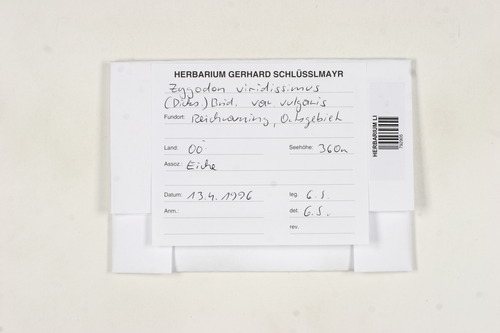 HERBARIUM GERHARD SCHLÜSSLMAYR
Zygodon viridissimus
(Dicks.) Brid. var. vulgaris
Fundort: Reichraming, Ortsgebiet
Land: OÖ Seehöhe: 360m
Assoz.: Eiche
Datum: 13.4.1996 leg. G.S.
Anm.: det. G.S.
rev.
HERBARIUM LI